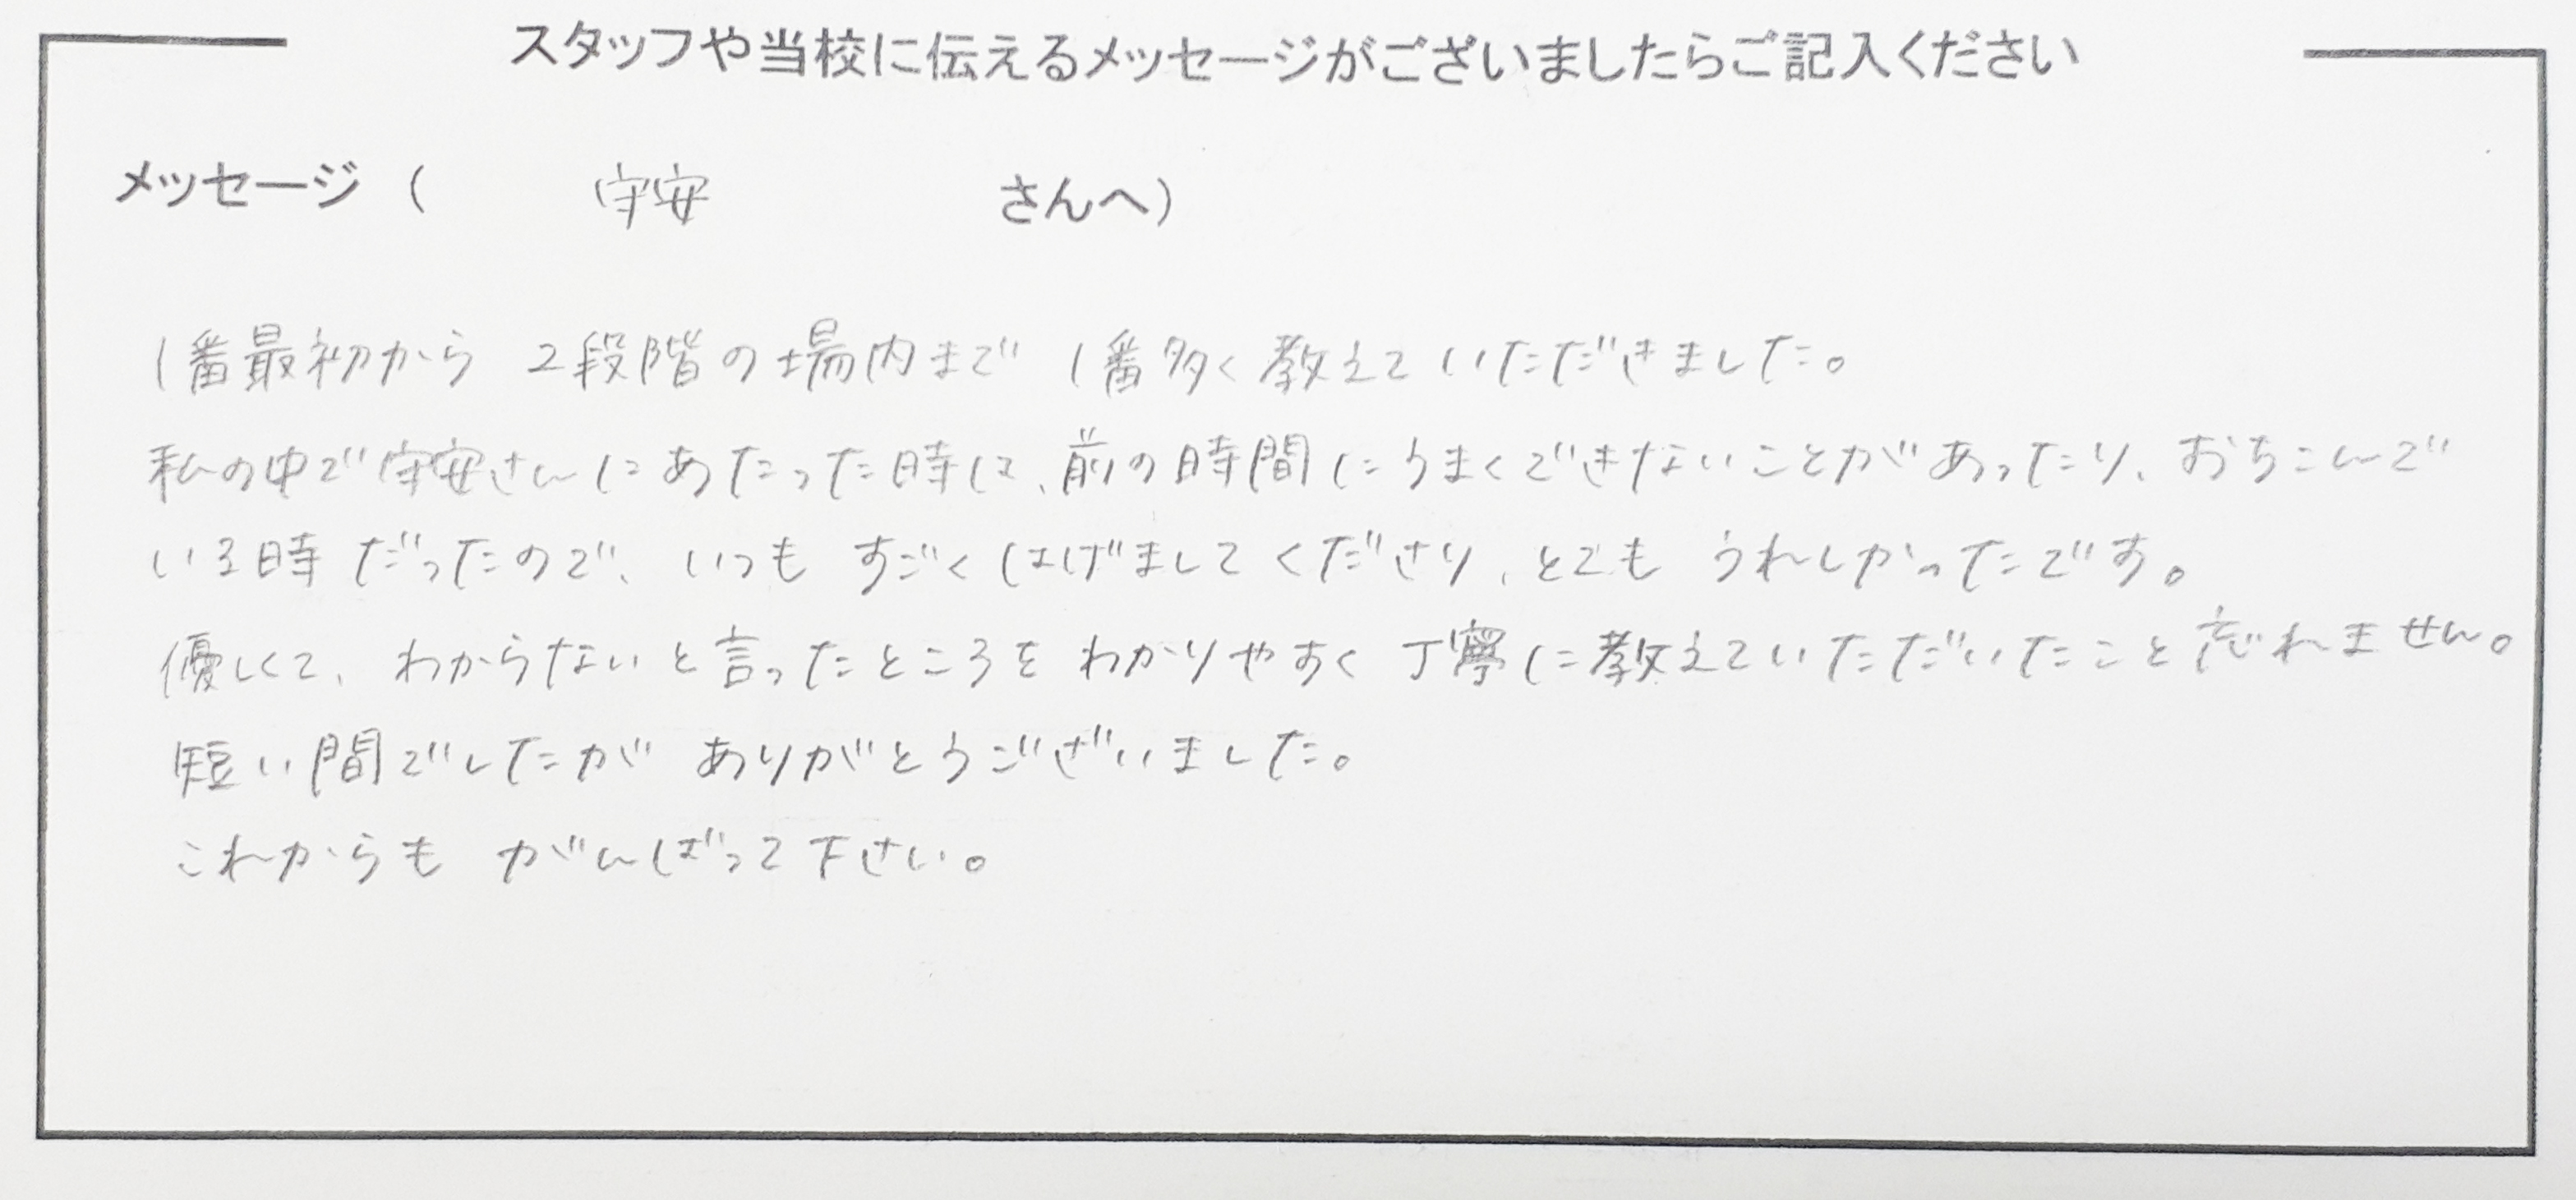 スタッフや当校に伝えるメッセージがございましたらご記入ください
メッセージ（ 守安 さんへ）
1番最初から 2段階の場内まで 1番多く教えていただきました。
私の中で守安さんにあたった時は、前の時間にうまくできないことがあったり、おちこんで
いる時だったので、いつも すごくはげましてくださり、とても うれしかったです。
優しくて、わからないと言ったところをわかりやすく丁寧に教えていただいたこと忘れません。
短い間でしたが ありがとうございました。
これからも がんばって下さい。